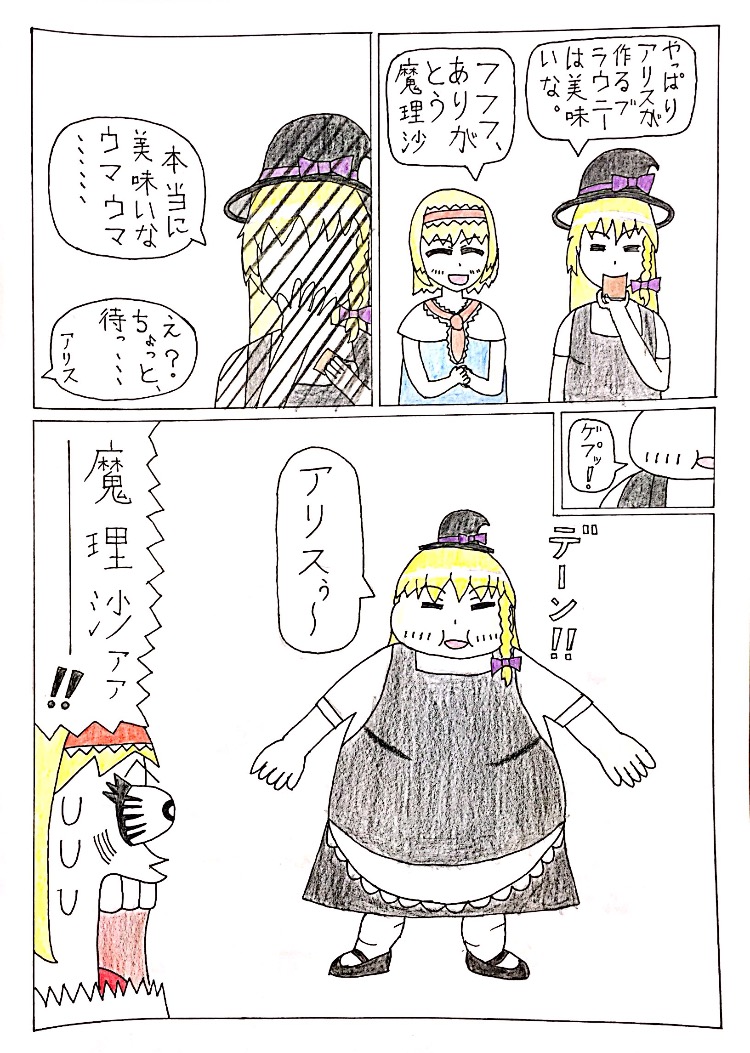 やっぱり
アリスが
作るブ
ラウニー
は美味
いな。
フフフ、
ありが
とう
魔理沙
本当に
美味いな
ウマウマ
……
え?
ちょっと、
待っ、、、
アリス
ゲプッ!
デーン!!
アリスぅ～
魔理沙ァァ
――!!